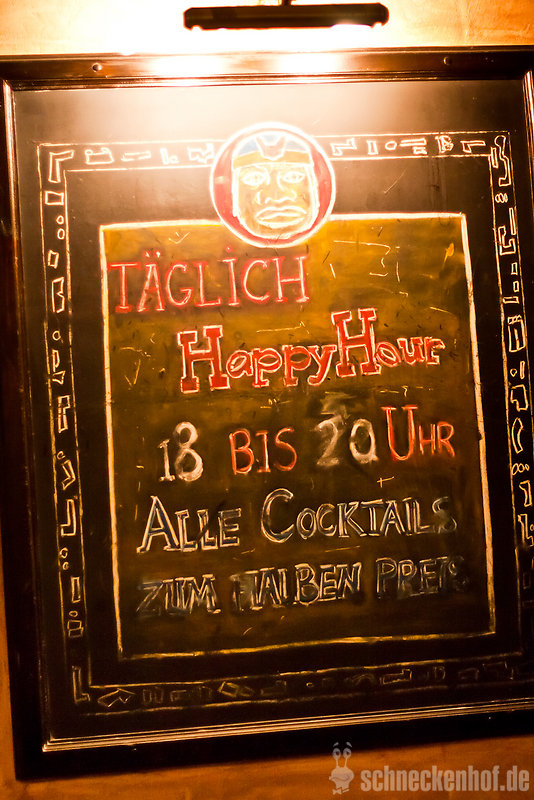 TÄGLICH
HappyHour
18 BIS 20 UHR
ALLE COCKTAILS
ZUM HALBEN PREIS
schneckenhof.de